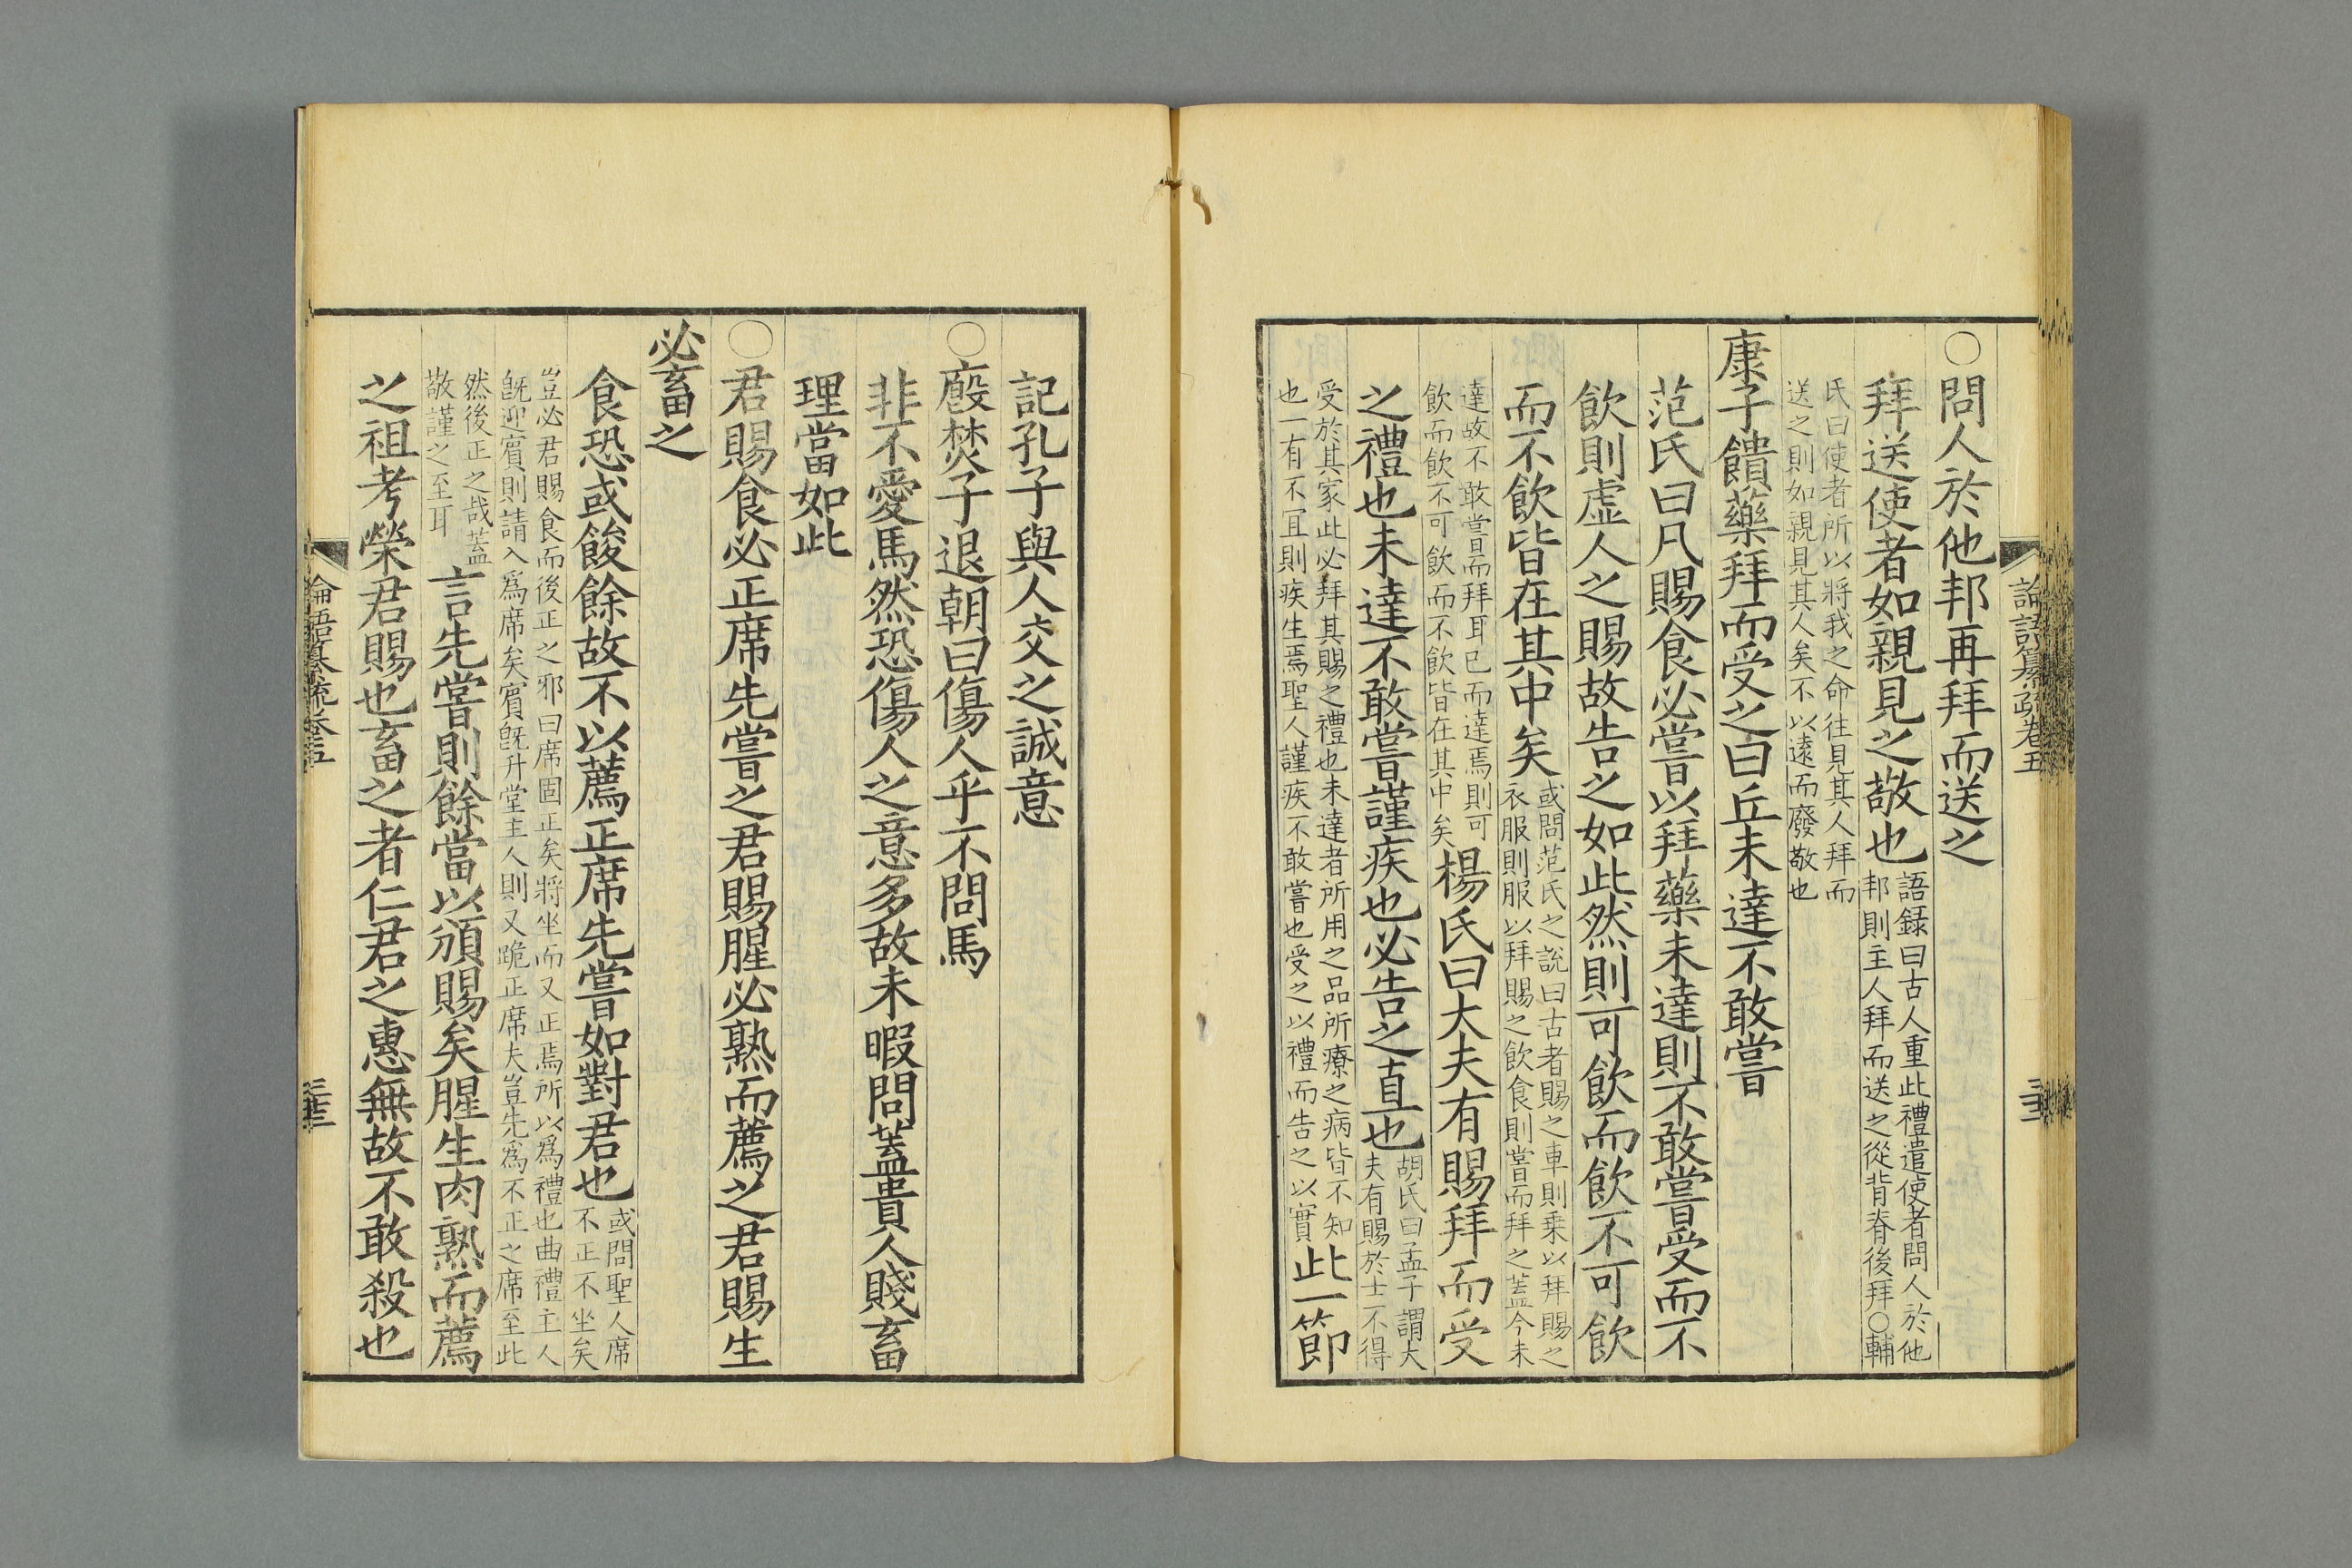 論語纂疏卷五
○問人於他邦再拜而送之
拜送使者如親見之敬也語録曰古人重此禮遣使者問人於他
邦則主人拜而送之從背脊後拜○輔
氏曰使者所以將我之命往見其人拜而
送之則如親見其人矣不以遠而廢敬也
康子饋藥拜而受之曰丘未達不敢嘗
范氏曰凡賜食必嘗以拜藥未達則不敢嘗受而不
飲則虛人之賜故告之如此然則可飲而飲不可飲
而不飲皆在其中矣或問范氏之說曰古者賜之車則乗以拜賜之
衣服則服以拜賜之飲食則嘗而拜之蓋今未
達故不敢嘗而拜耳已而達焉則可
飲而飲不可飲而不飲皆在其中矣楊氏曰大夫有賜拜而受
之禮也未達不敢嘗謹疾也必告之直也胡氏曰孟子謂大
夫有賜於士不得
受於其家此必拜其賜之禮也未達者所用之品所療之病皆不知
也一有不冝則疾生焉聖人謹疾不敢嘗也受之以禮而告之以實此一節
記孔子與人交之誠意
○廏焚子退朝曰傷人乎不問馬
非不愛馬然恐傷人之意多故未暇問蓋貴人賤畜
理當如此
○君賜食必正席先嘗之君賜腥必熟而薦之君賜生
必畜之
食恐或餕餘故不以薦正席先嘗如對君也或問聖人席
不正不坐矣
豈必君賜食而後正之邪曰席固正矣將坐而又正焉所以爲禮也曲禮主人
旣迎賓則請入爲席矣賓旣升堂主人則又跪正席夫豈先爲不正之席至此
然後正之哉蓋
敬謹之至耳言先嘗則餘當以頒賜矣腥生肉熟而薦
之祖考榮君賜也畜之者仁君之惠無故不敢殺也
論語纂疏卷五